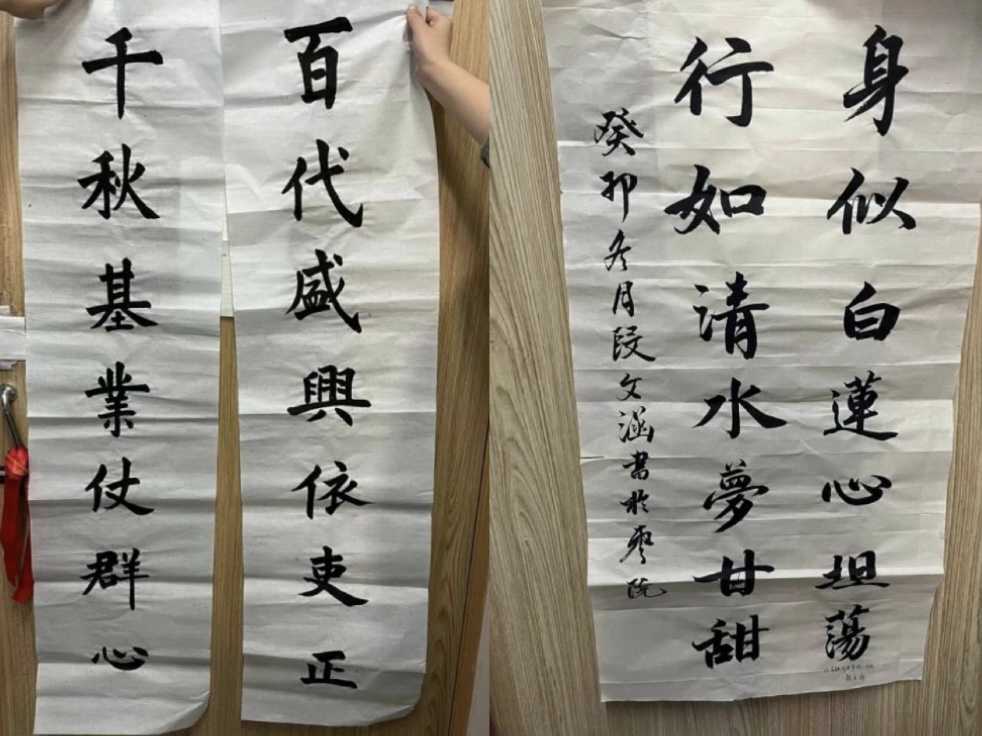 百代盛興依吏正
千秋基業仗群心
身似白蓮心坦蕩
行如清水夢甘甜
癸卯冬月段文涵書於寥院